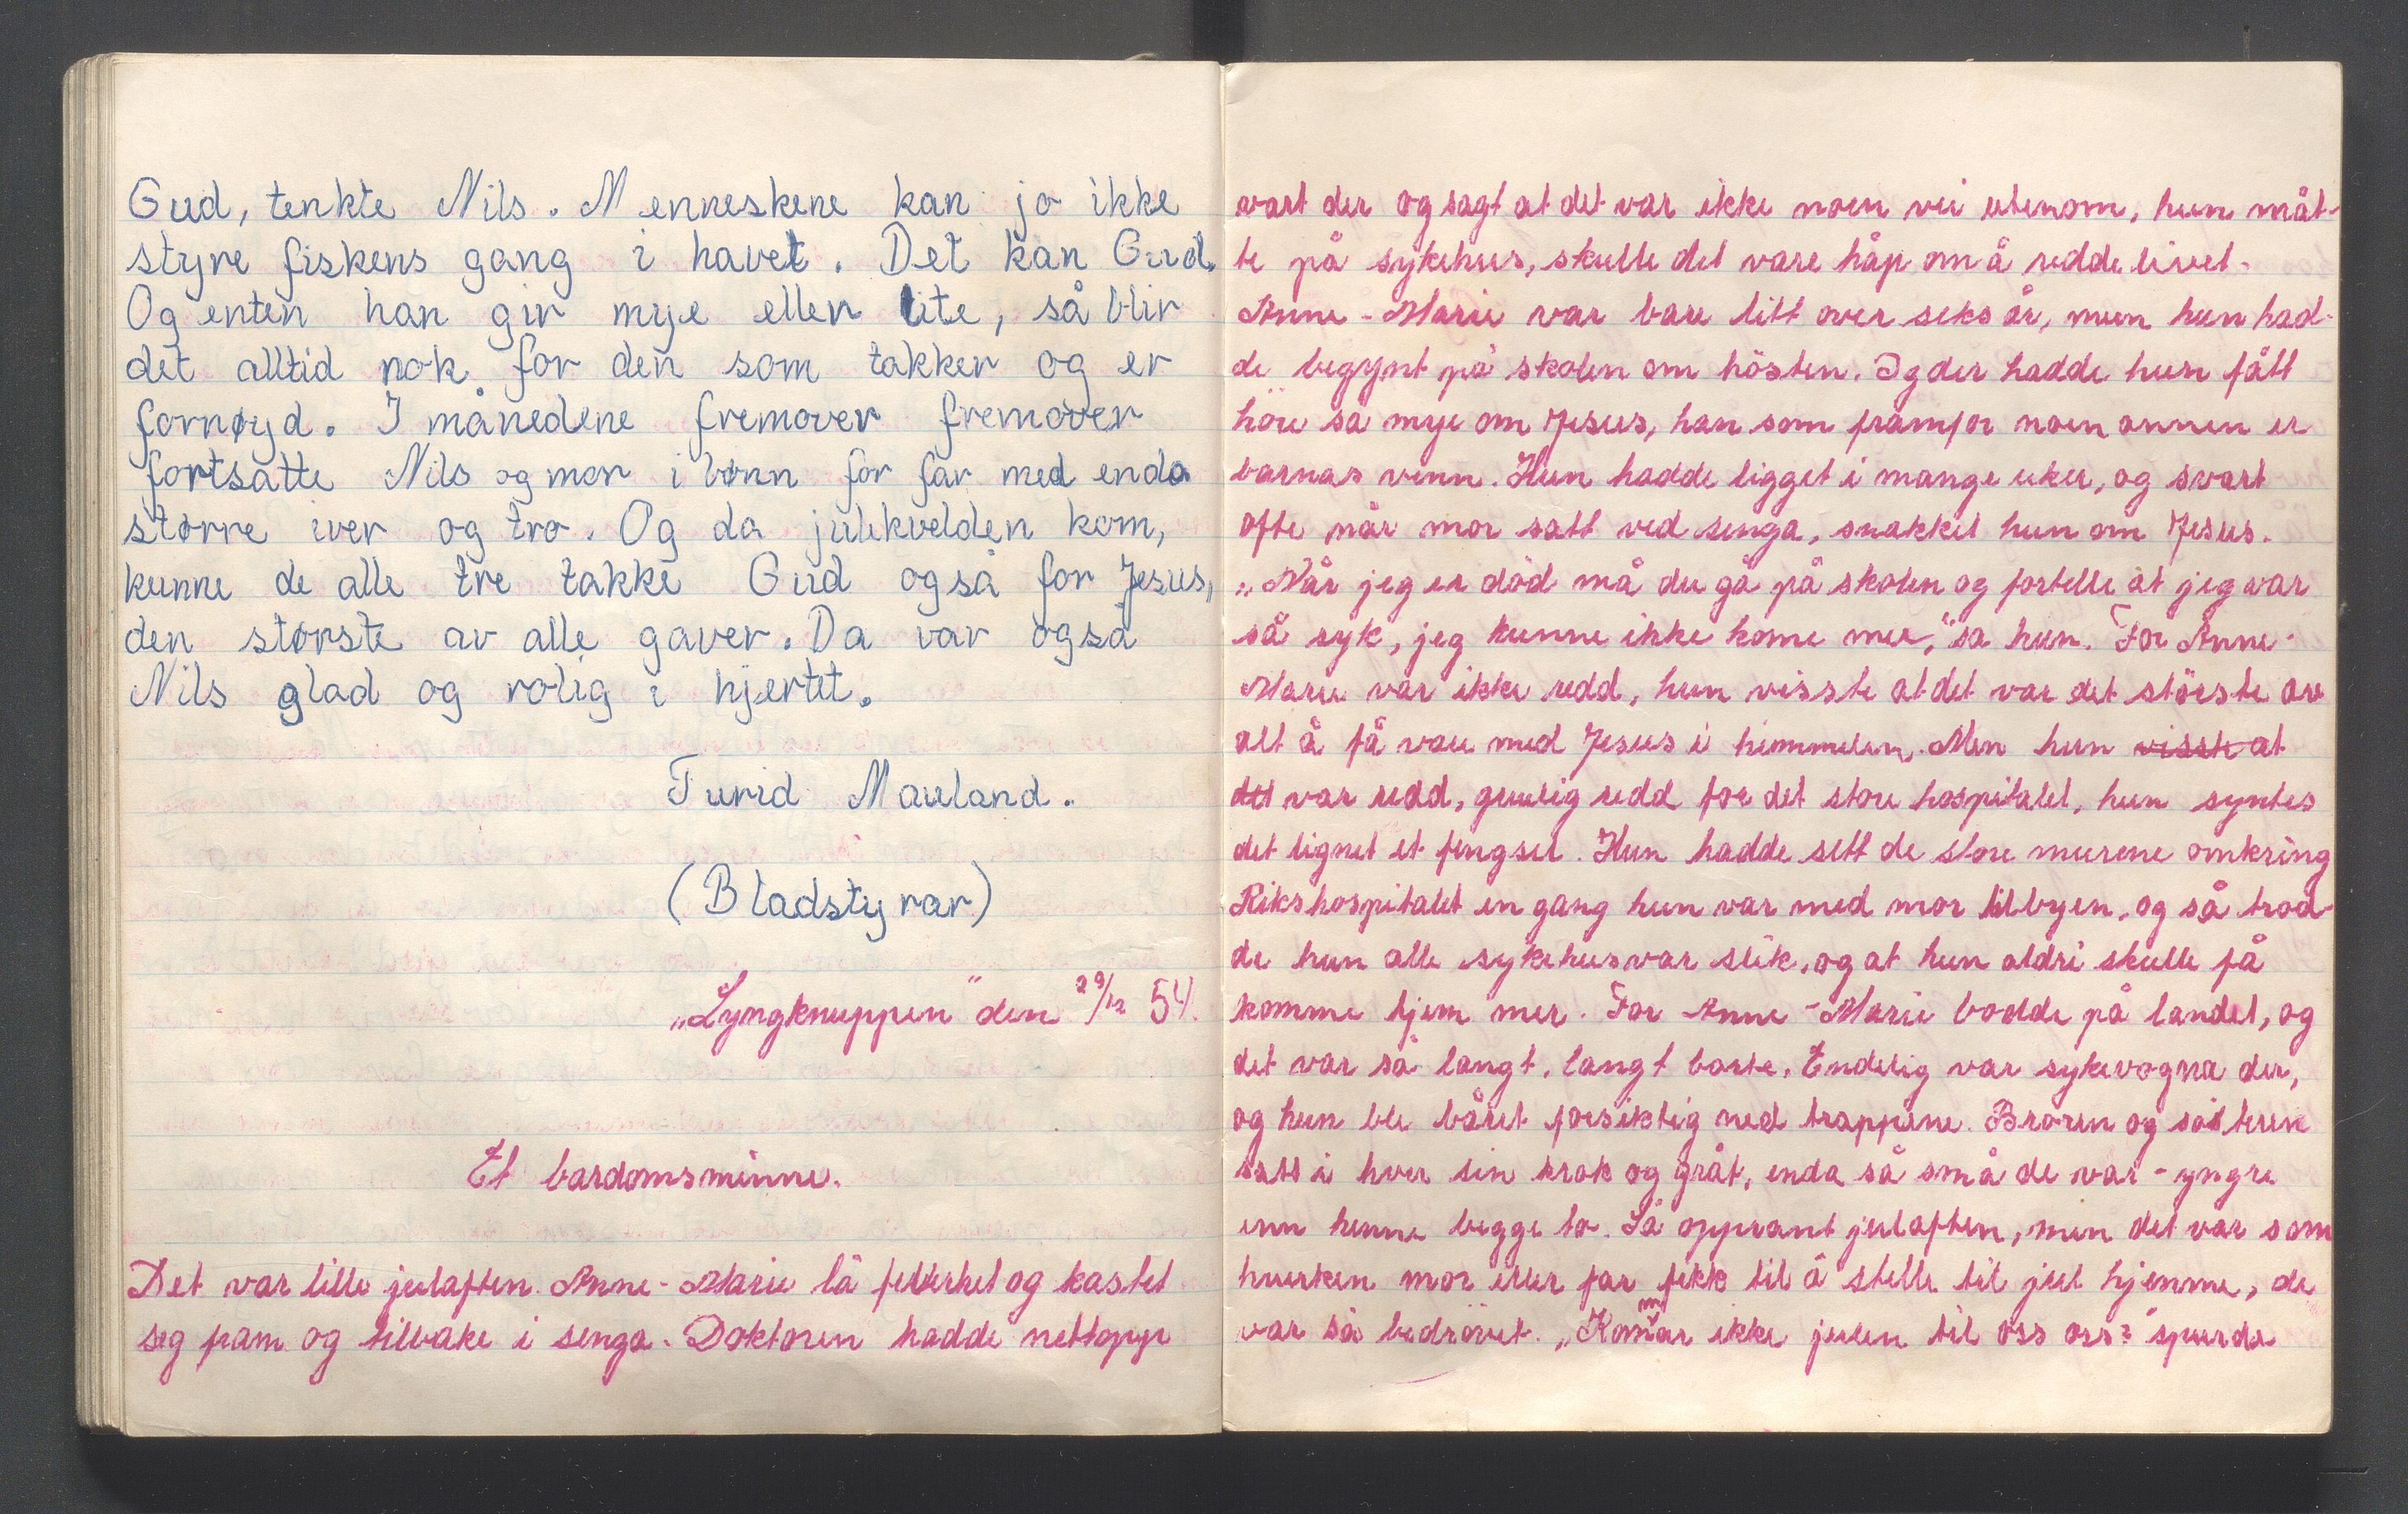 Gud, tenkte Nils. Menneskene kan jo ikke
styre fiskens gang i havet. Det kan Gud.
Og enten han gir mye eller lite, så blir
det alltid nok for den som takker og er
fornøyd. I månedene fremover fremover
fortsatte Nils og mor i bønn for far med enda
større iver og tro. Og da julekvelden kom,
kunne de alle tre takke Gud også for Jesus,
den største av alle gaver. Da var også
Nils glad og rolig i hjertet.
Turid Mauland.
(Bladstyrar)
„Lyngknuppen" den 29/12 54.
Et bardomsminne.
Det var lille julaften. Anne-Marie lå febberhet og kastet
seg fram og tilbake i senga. Doktoren hadde nettopp
vært der og sagt at det var ikke noen vei utenom, hun måt-
te på sykehus, skulle det være håp om å redde livet.
Anne-Marie var bare litt over seks år, men hun had-
de begynt på skolen om hösten. Og der hadde hun fått
höre så mye om Jesus, han som framfor noen annen er
barnas venn. Hun hadde ligget i mange uker, og svært
ofte når mor satt ved senga, snakket hun om Jesus.
„Når jeg er död må du gå på skolen og fortelle at jeg var
så syk, jeg kunne ikke kome mer," sa hun. For Anne-
Marie var ikke redd, hun visste at det var det störste av
alt å få være med Jesus i himmelen. Men hun visste at
det var redd, gruelig redd for det store hospitalet, hun syntes
det lignet et fengsel. Hun hadde sett de store murene omkring
Rikshospitalet en gang hun var med mor til byen, og så trod-
de hun alle sykehus var slik, og at hun aldri skulle få
komme hjem mer. For Anne-Marie bodde på landet, og
det var så langt, langt borte. Endelig var sykevogna der,
og hun ble båret forsiktig ned trappene. Broren og sösteren
satt i hver sin krok og gråt, enda så små de var - yngre
enn henne begge to. Så opprant julaften, men det var som
hverken mor eller far fekk til å stelle til jul hjemme, de
var så bedrövet. „Kommar ikke julen til oss oss?" spurde